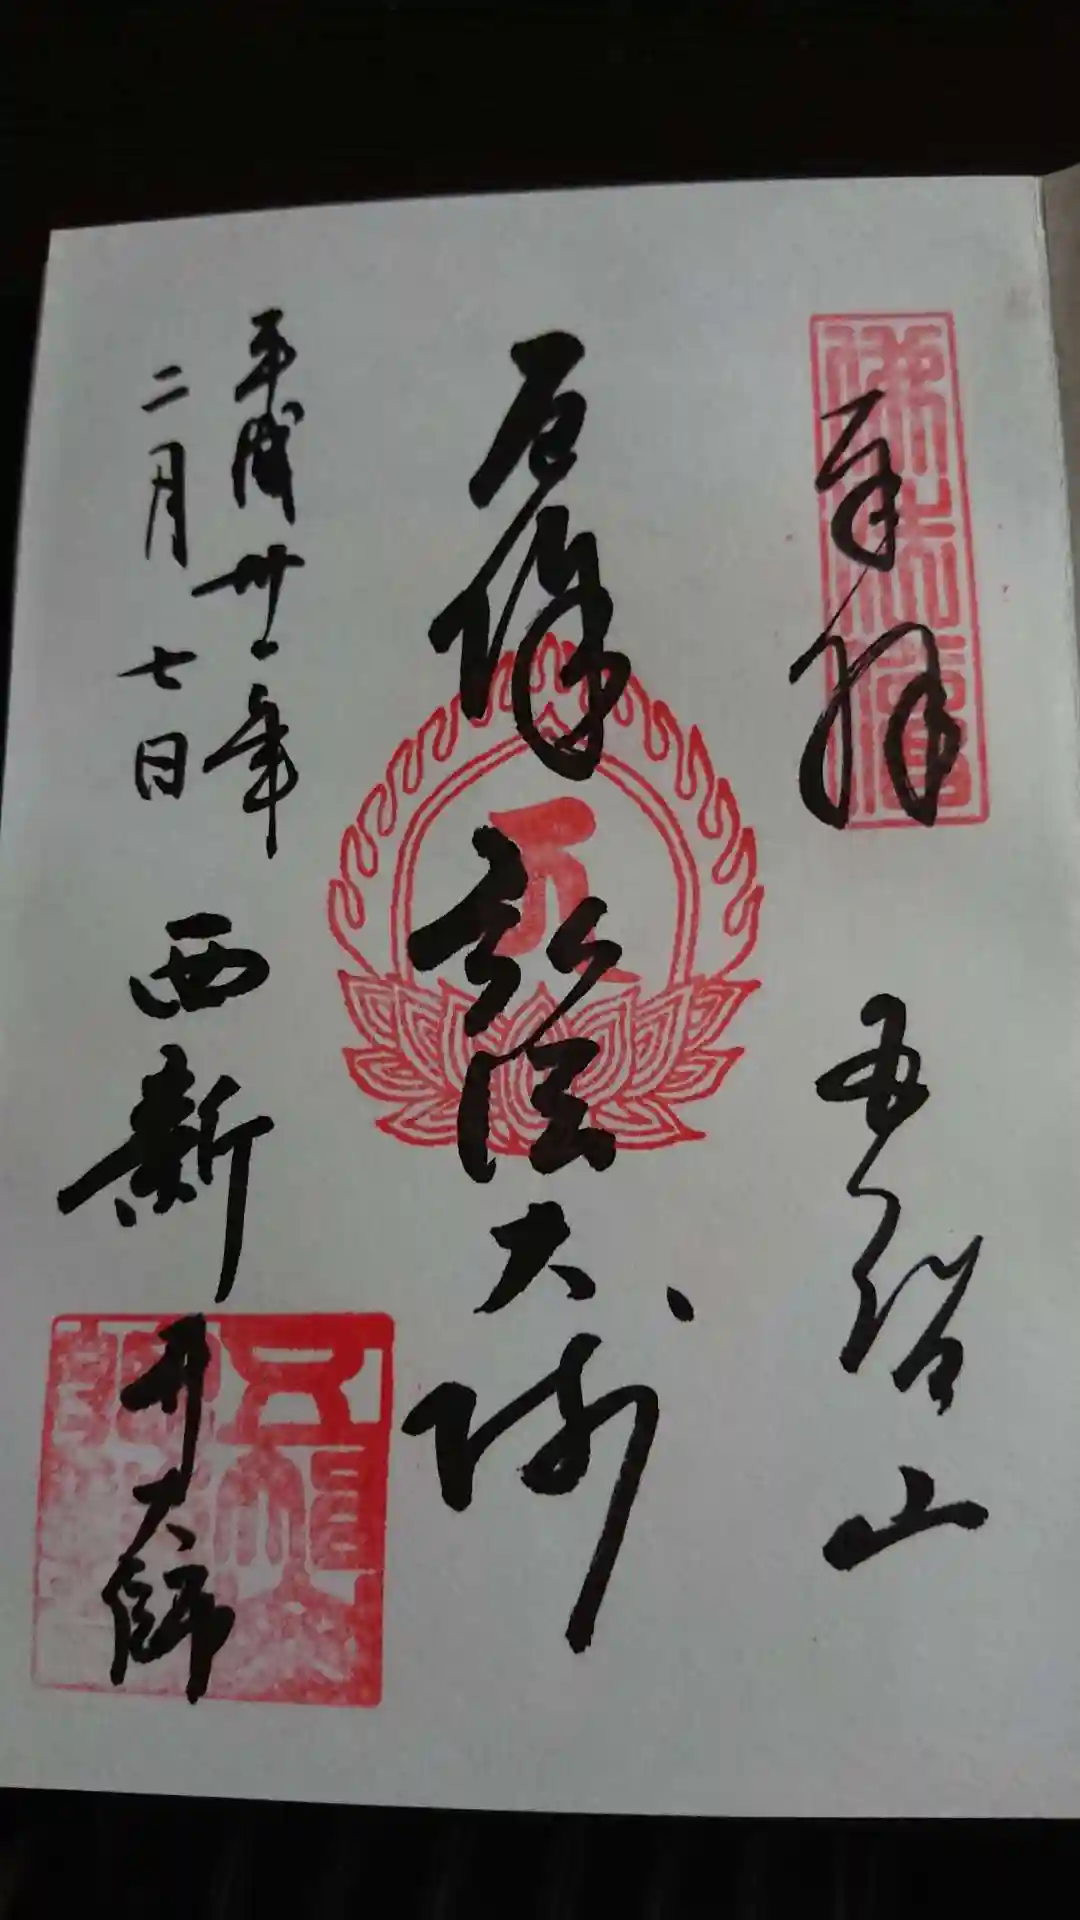 奉拝
五智山
厄除
弘法大師
平成卅一年
二月七日
西新井大師